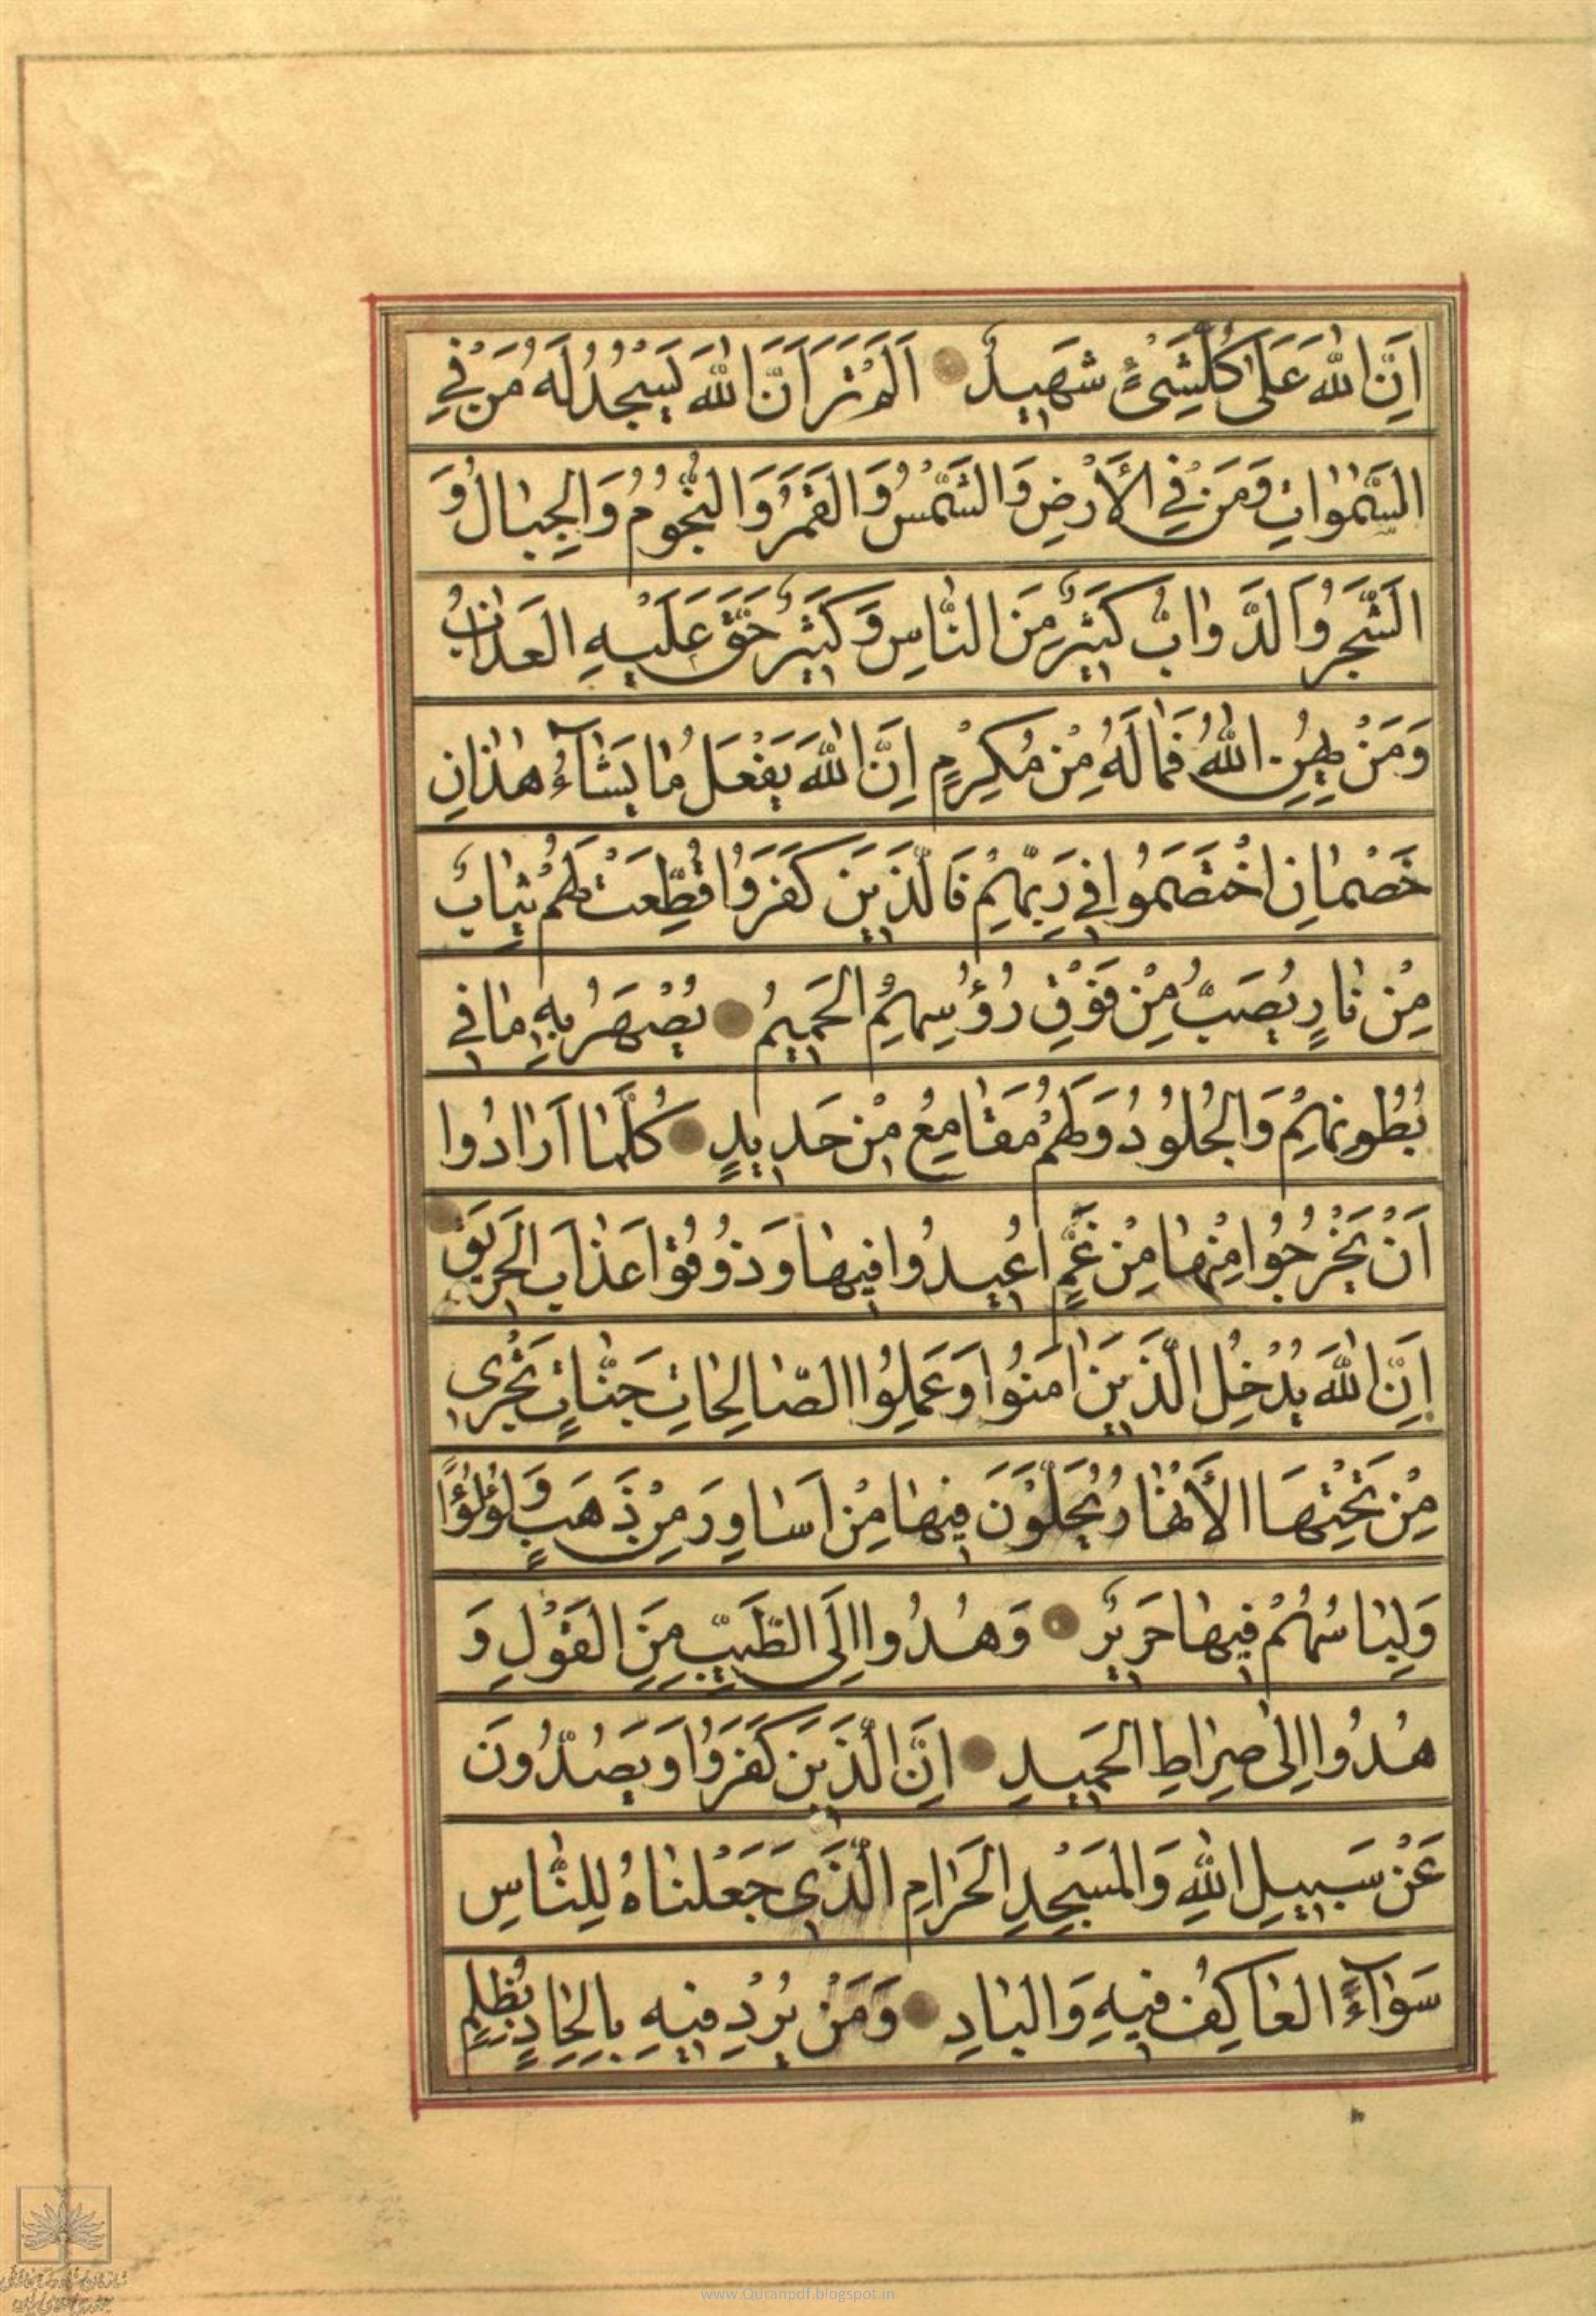 اِنَّ اللهَ عَلٰى كُلِّ شَىْءٍ شَهِيدٌ اَلَمْ تَرَ اَنَّ اللهَ يَسْجُدُ لَهُ مَنْ فِي
السَّمٰوٰاتِ وَمَنْ فِي الْاَرْضِ وَالشَّمْسُ وَالْقَمَرُ وَالنُّجُومُ وَالْجِبٰالُ وَ
الشَّجَرُ وَالدَّوٰابُّ كَثِيرٌ مِنَ النّٰاسِ وَكَثِيرٌ حَقَّ عَلَيْهِ الْعَذٰابُ
وَمَنْ يُهِنِ اللهُ فَمٰا لَهُ مِنْ مُكْرِمٍ اِنَّ اللهَ يَفْعَلُ مٰا يَشٰآءُ هٰذٰانِ
خَصْمٰانِ اخْتَصَمُوا فِي رَبِّهِمْ فَالَّذِينَ كَفَرُوا قُطِّعَتْ لَهُمْ ثِيٰابٌ
مِنْ نٰارٍ يُصَبُّ مِنْ فَوْقِ رُؤُسِهِمُ الْحَمِيمُ يُصْهَرُ بِهِ مٰا فِي
بُطُونِهِمْ وَالْجُلُودُ وَلَهُمْ مَقٰامِعُ مِنْ حَدِيدٍ كُلَّمٰا اَرٰادُوا
اَنْ يَخْرُجُوا مِنْهٰا مِنْ غَمٍّ اُعِيدُوا فِيهٰا وَذُوقُوا عَذٰابَ الْحَرِيقِ
اِنَّ اللهَ يُدْخِلُ الَّذِينَ اٰمَنُوا وَعَمِلُوا الصّٰالِحٰاتِ جَنّٰاتٍ تَجْرِى
مِنْ تَحْتِهَا الْاَنْهٰارُ يُحَلَّوْنَ فِيهٰا مِنْ اَسٰاوِرَ مِنْ ذَهَبٍ وَلُؤْلُؤًا
وَلِبٰاسُهُمْ فِيهٰا حَرِيرٌ وَهُدُوا اِلَى الطَّيِّبِ مِنَ الْقَوْلِ وَ
هُدُوا اِلٰى صِرٰاطِ الْحَمِيدِ اِنَّ الَّذِينَ كَفَرُوا وَيَصُدُّونَ
عَنْ سَبِيلِ اللهِ وَالْمَسْجِدِ الْحَرٰامِ الَّذِي جَعَلْنٰاهُ لِلنّٰاسِ
سَوٰآءً الْعٰاكِفُ فِيهِ وَالْبٰادِ وَمَنْ يُرِدْ فِيهِ بِاِلْحٰادٍ بِظُلْمٍ
www.Quranpdf.blogspot.in